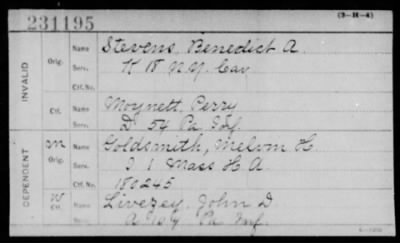 231195
(3-H-4)
INVALID
Orig.
Name Stevens, Benedict A.
Serv. K 18 N.Y. Cav
Ctf. No.
Ctf.
Name Moynett, Perry
Serv. D 54 Pa Inf.
DEPENDENT
M Orig.
Name Goldsmith, Melvin H.
Serv. I 1 Mass H A.
Ctf. No. 180245
W Ctf.
Name Livezey, John D.
Serv. A Pa Inf.